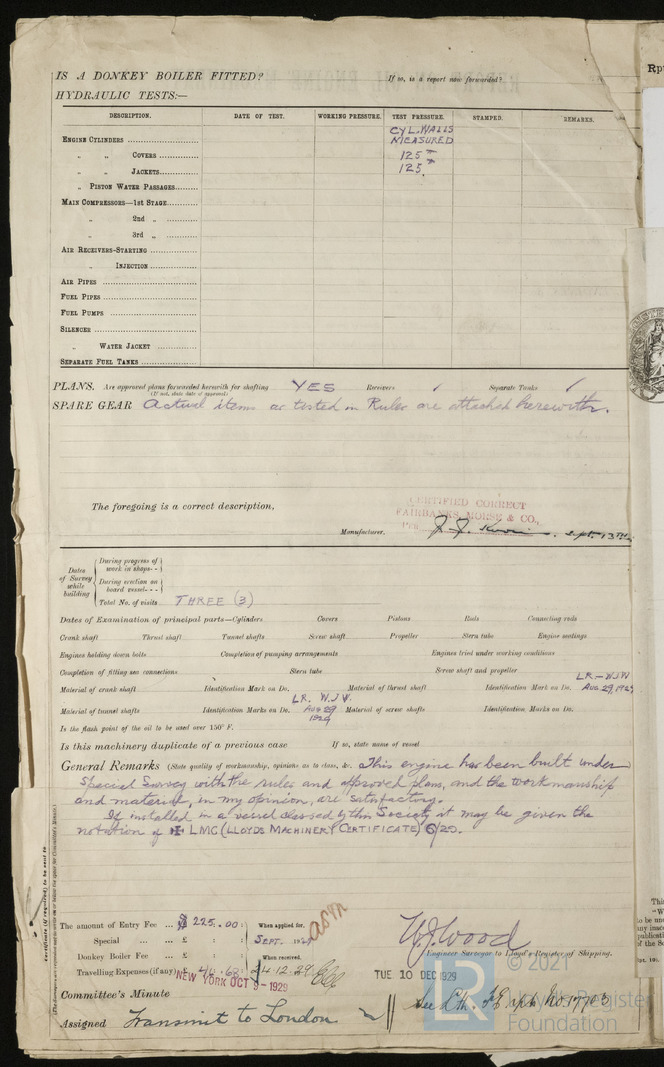 IS A DONKEY BOILER FITTED? If so, is a report now forwarded?
HYDRAULIC TESTS:—
DESCRIPTION. DATE OF TEST. WORKING PRESSURE. TEST PRESSURE. STAMPED. REMARKS.
CYL. WALLS
ENGINE CYLINDERS MEASURED
„ „ COVERS 125
„ „ JACKETS 125
„ PISTON WATER PASSAGES
MAIN COMPRESSORS—1st STAGE
„ 2nd „
„ 3rd „
AIR RECEIVERS-STARTING
„ INJECTION
AIR PIPES
FUEL PIPES
FUEL PUMPS
SILENCES
„ WATER JACKET
SEPARATE FUEL TANKS
PLANS. Are approved plans forwarded herewith for shafting YES Receivers ✓ Separate Tanks ✓
(If not, state date of approval)
SPARE GEAR Actual items as tested in Rules are attached herewith.
CERTIFIED CORRECT
The foregoing is a correct description, FAIRBANKS, MORSE & CO.,
Manufacturer. PER Sept. 13th
Dates of Survey while building
During progress of work in shops - -
During erection on board vessel - - -
Total No. of visits THREE (3)
Dates of Examination of principal parts—Cylinders Covers Pistons Rods Connecting rods
Crank shaft Thrust shaft Tunnel shafts Screw shaft Propeller Stern tube Engine seatings
Engines holding down bolts Completion of pumping arrangements Engines tried under working conditions
Completion of fitting sea connections Stern tube Screw shaft and propeller
LR.—W.J.W
Material of crank shaft Identification Mark on Do. Material of thrust shaft Identification Mark on Do. AUG 29, 1929
LR. W.J.W.
Material of tunnel shafts Identification Marks on Do. AUG 29 1929 Material of screw shafts Identification Marks on Do.
Is the flash point of the oil to be used over 150° F.
Is this machinery duplicate of a previous case If so, state name of vessel
General Remarks (State quality of workmanship, opinions as to class, &c. This engine has been built under
Special Survey with the rules and approved plans, and the workmanship
and material, in my opinion, are satisfactory.
If installed in a vessel classed by this Society it may be given the
notation of ✠ LMC (LLOYDS MACHINERY CERTIFICATE) 6/29.
The amount of Entry Fee ... $ 225.00 : When applied for,
Special ... ... £ : : SEPT. 1929
Donkey Boiler Fee ... £ : : When received,
Travelling Expenses (if any) £ 4.12.29
W.J. Wood
Engineer Surveyor to Lloyd's Register of Shipping.
NEW YORK OCT 9 - 1929
TUE 10 DEC 1929
Committee's Minute
Assigned Transmit to London
© 2021
Lloyd's Register
Foundation
Certificate (if required) to be sent to
Rp